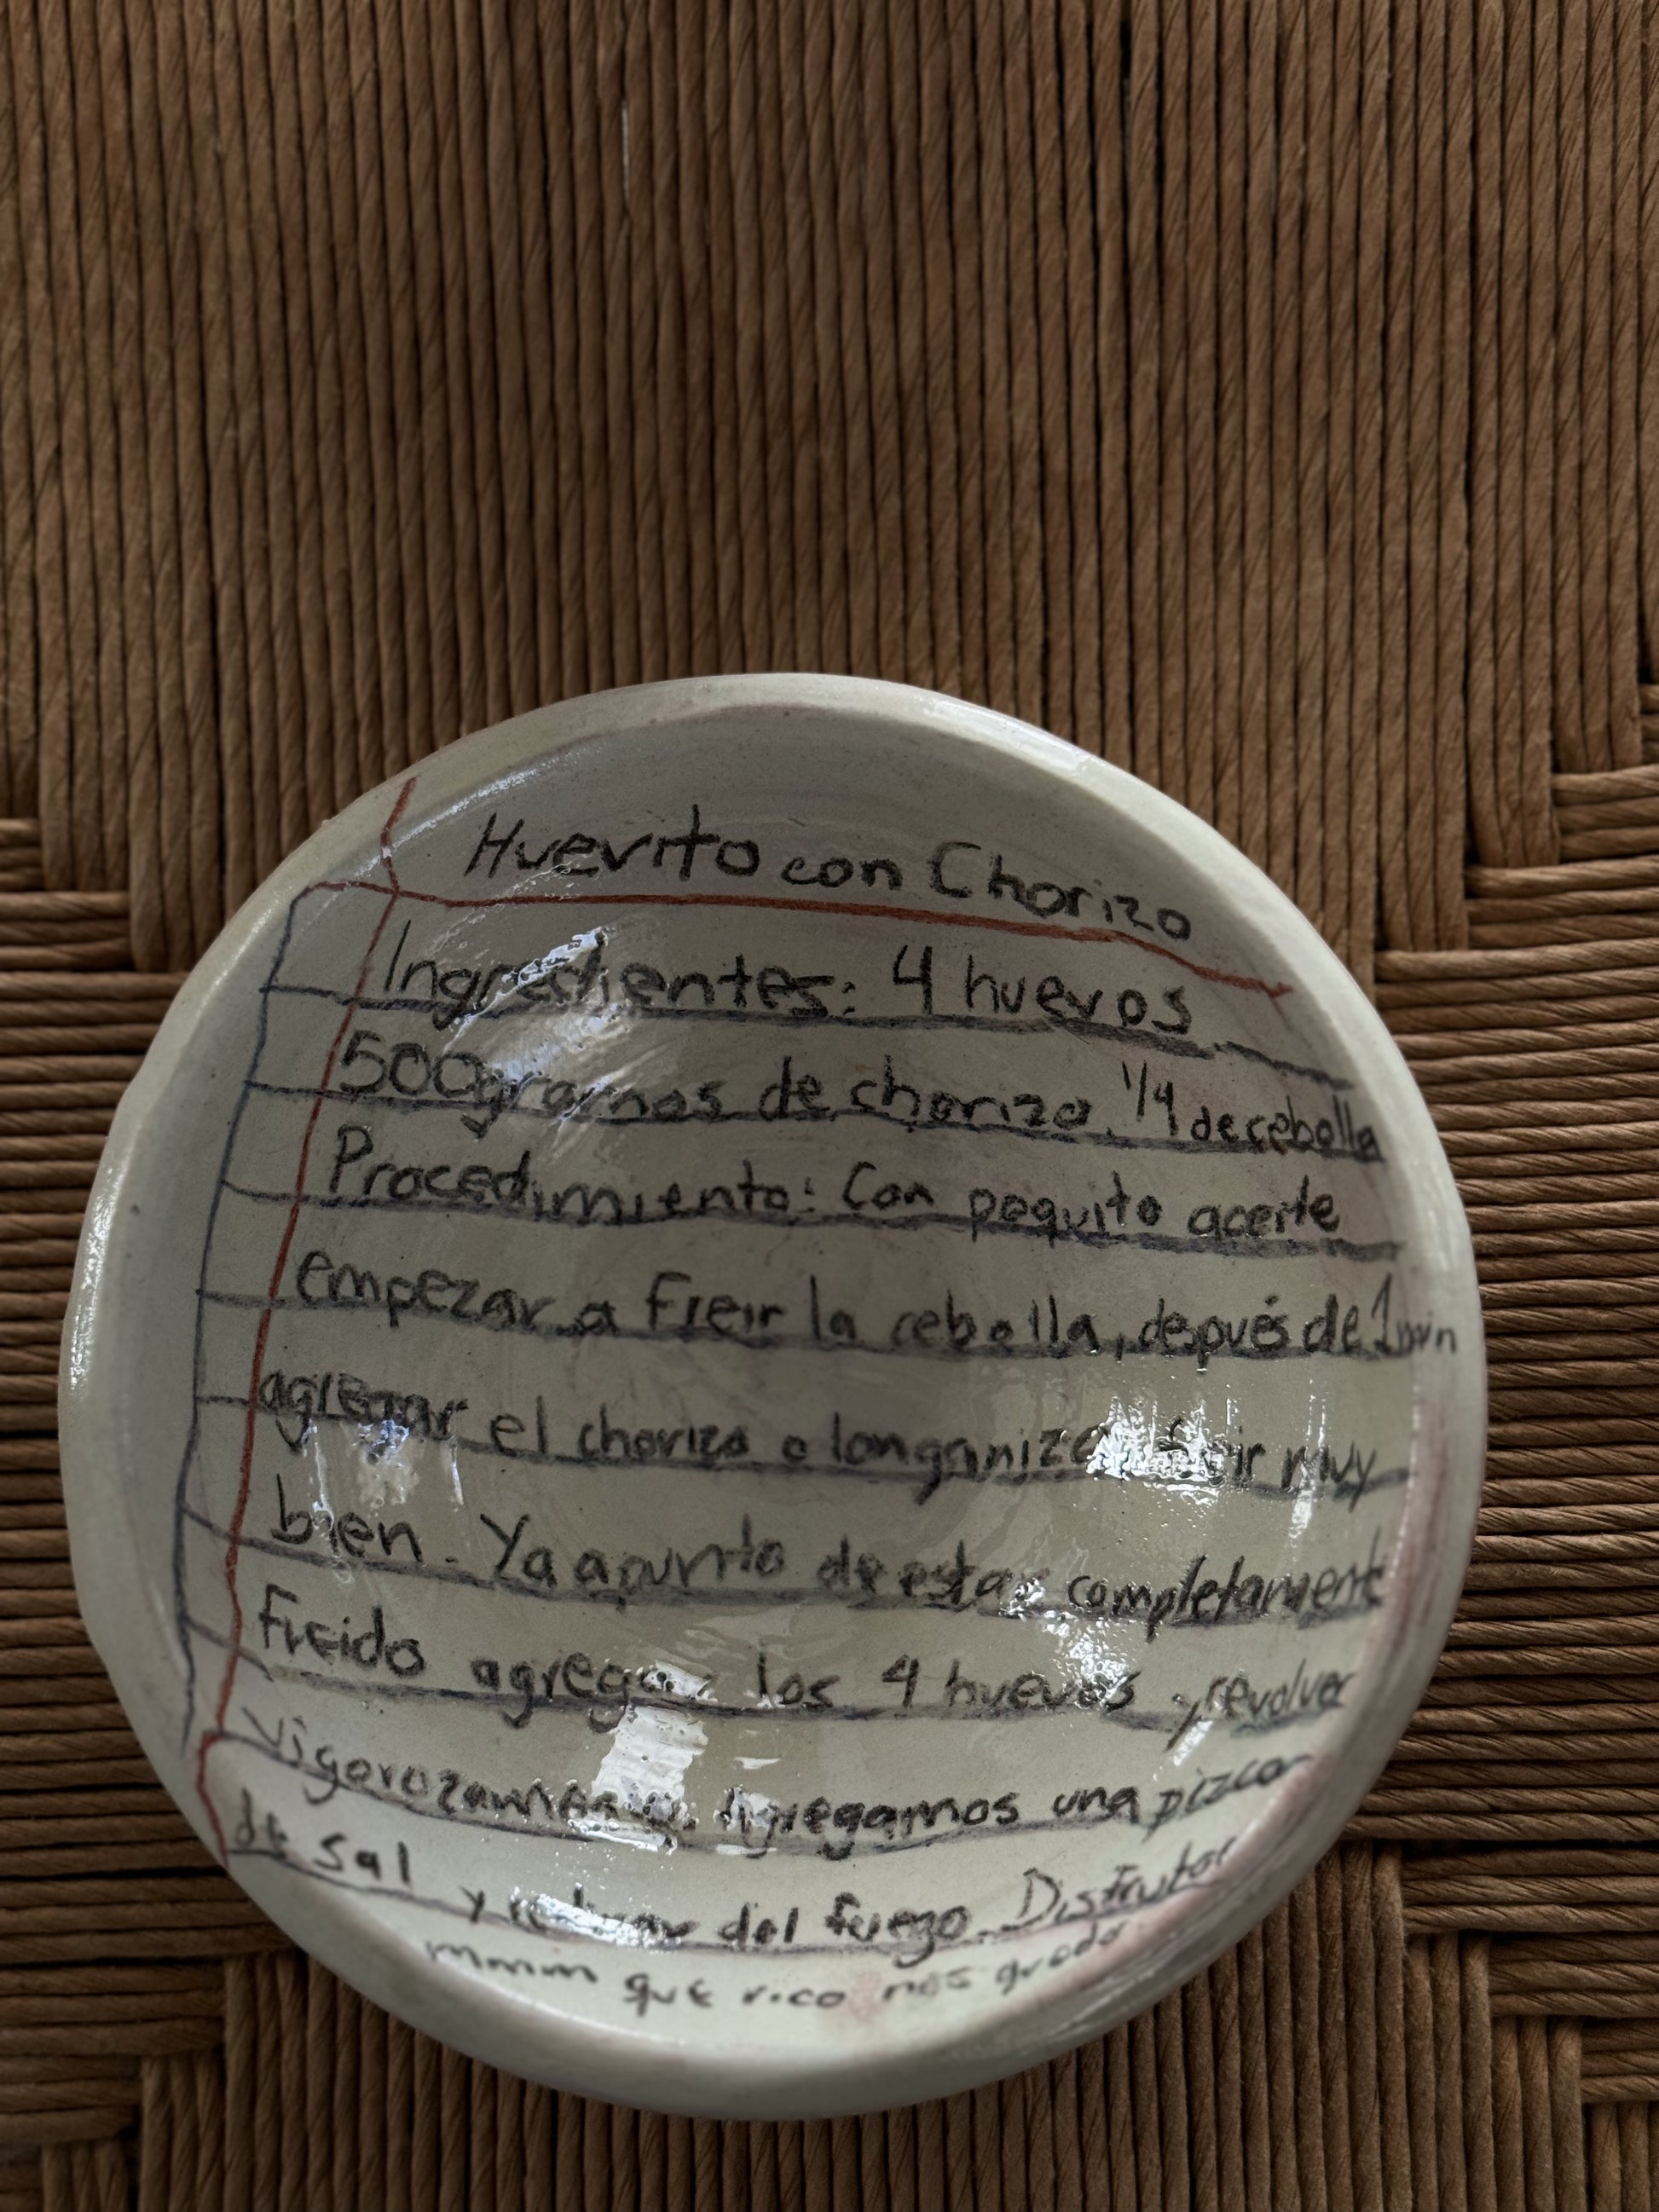 Huevito con Chorizo
Ingredientes: 4 huevos
500gramos de chorizo. 1/4 de cebolla
Procedimiento: Con poquito aceite
empezar a Freir la cebolla, después de 1 min
agregar el chorizo o longaniza freir muy
bien. Ya apunto de estar completamente
Freido agregar los 4 huevos y revolver
Vigorozamente. Agregamos una pizca
de Sal y retirar del fuego. Disfrutar
Mmmm que rico nos quedo